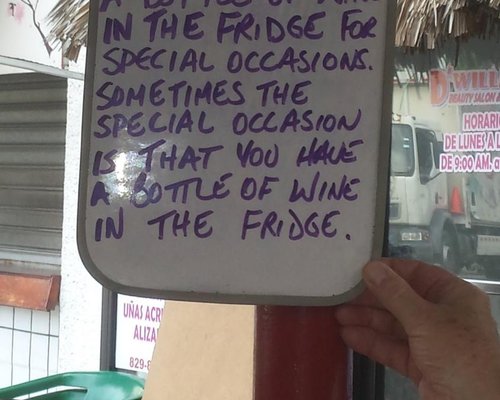 A BOTTLE OF WINE
IN THE FRIDGE FOR
SPECIAL OCCASIONS.
SOMETIMES THE
SPECIAL OCCASION
IS THAT YOU HAVE
A BOTTLE OF WINE
IN THE FRIDGE.
D'WILL
BEAUTY SALON
HORARIO
DE LUNES A
DE 9:00 AM.
UÑAS ACR
ALIZA
829-8